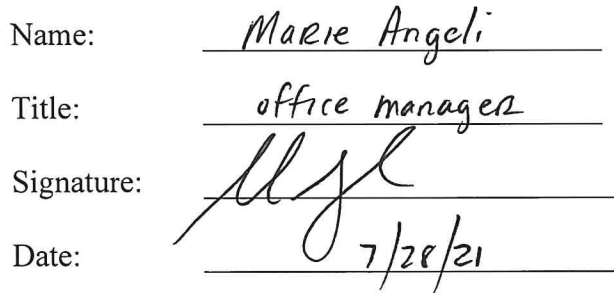 Name: Marie Angeli
Title: office manager
Signature:
Date: 7/28/21